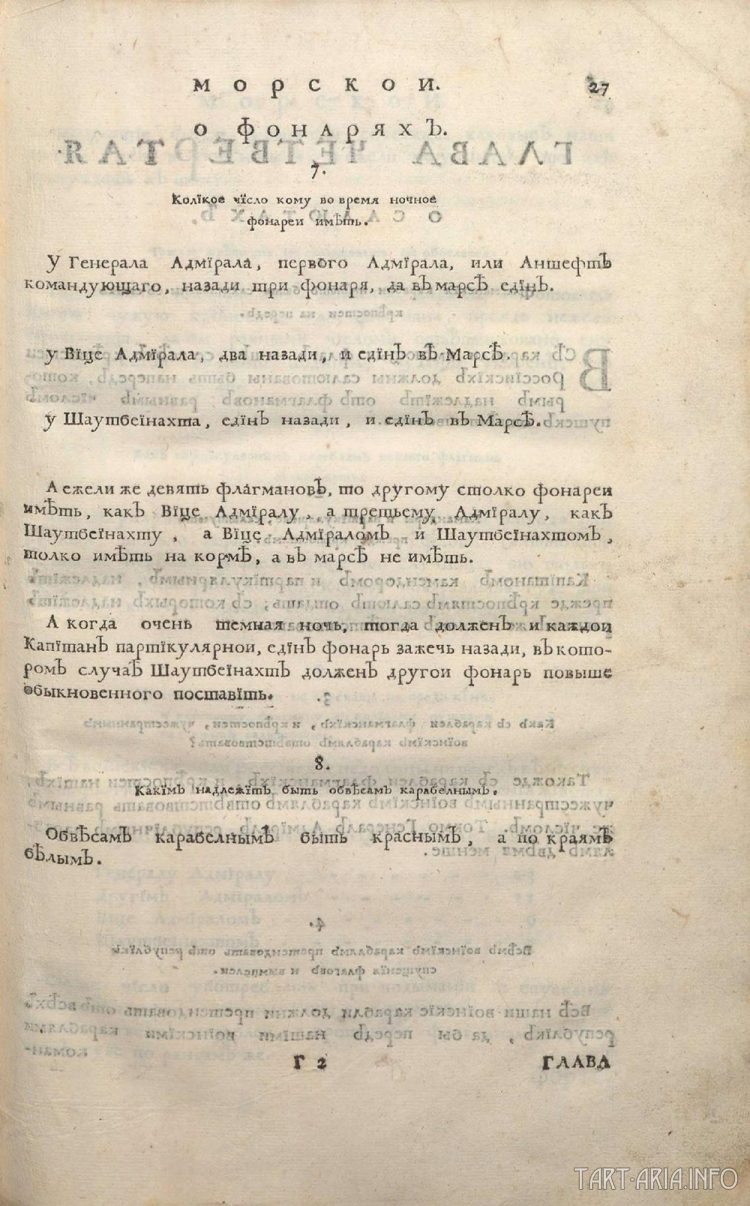 МОРСКОИ. 27
О ФОНАРЯХЪ.
7.
Колїкое чїсло кому во время ночное
фонареи имѣть.
У Генерала Адмїрала, первого Адмїрала, или Аншефтъ
командующаго, назади три фонаря, да въ марсѣ едїнъ.
у Вїце Адмїрала, два назади, и едїнъ въ Марсѣ.
у Шаутбеїнахта, едїнъ назади, и едїнъ въ Марсѣ.
А ежели же девять флагмановъ, то другому столко фонареи
имѣть, какъ Вїце Адмїралу, а третьему Адмїралу, какъ
Шаутбеїнахту, а Вїце Адмїраломъ и Шаутбеїнахтомъ,
толко имѣть на кормѣ, а въ марсѣ не имѣть.
А когда очень темная ночь, тогда долженъ и каждои
Капїтан партїкулярнои, едїнъ фонарь зажечь назади, въ кото-
ромъ случаѣ Шаутбеїнахтъ долженъ другои фонарь повыше
обыкновенного поставїть.
8.
Какїмъ надлежїтъ быть обвѣсамъ карабелнымъ.
Обвѣсамъ карабелнымъ быть краснымъ, а по краямъ
бѣлымъ.
Г 2 ГЛАВА
TART-ARIA.INFO